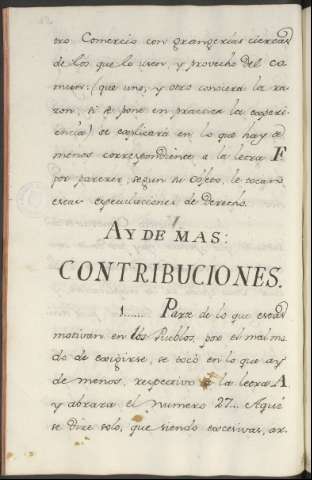 tro Comercio con grangerias ciertas
de los que lo usen, y provecho del co
mun: (que uno, y otro conocera la ra-
zon, si se pone en practica la experi-
encia) se explicará en lo que hay de
menos correspondiente a la letra F
por parecer, segun su objeto, le tocan
estas especulaciones de derecho.
AY DE MAS:
CONTRIBUCIONES.
1...... Parte de lo que estas
motivan en los Pueblos, por el mal mo
do de exigirse, se tocó en lo que ay
de menos, respectivo á la letra A
y abraza el numero 27... Aqui
se dice solo, que siendo excesivas, ar-